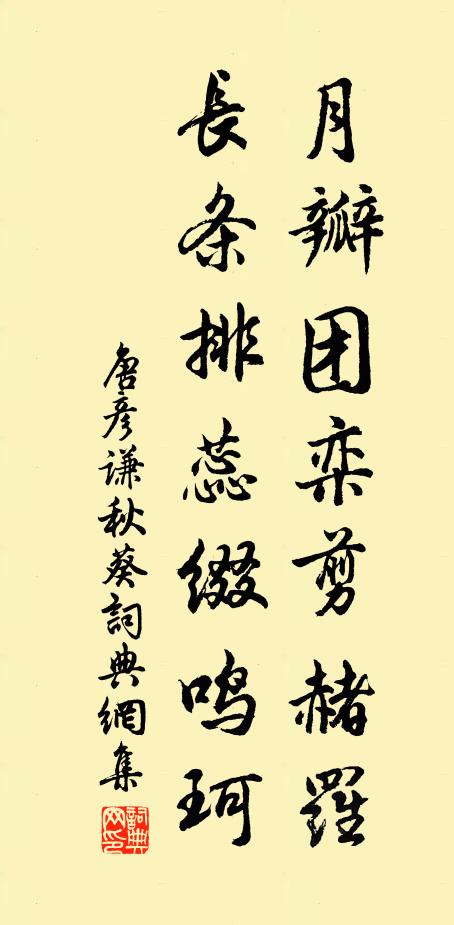 月瓣团栾剪赭羅
長条排蕊缀鸣珂
唐彦谦秋葵詞典網集
詞典网印